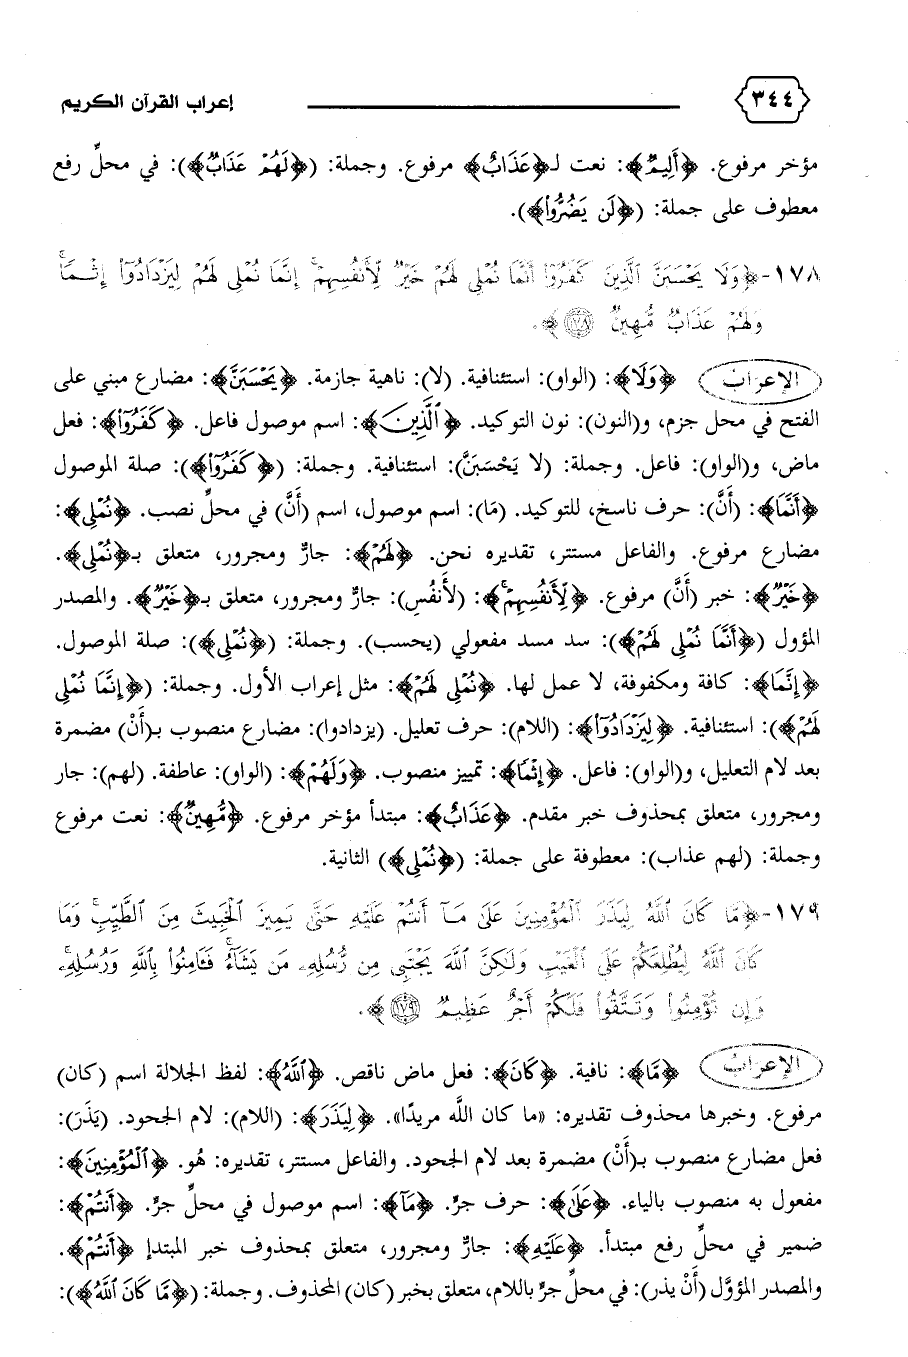 ٣٤٤ إعراب القرآن الكريم
مؤخر مرفوع. ﴿أَلِيمٌ﴾: نعت لـ﴿عَذَابٌ﴾ مرفوع. وجملة: (﴿لَهُمْ عَذَابٌ﴾): في محلِّ رفع
معطوف على جملة: (﴿لَن يَضُرُّواْ﴾).
١٧٨-﴿وَلَا يَحْسَبَنَّ الَّذِينَ كَفَرُوٓاْ أَنَّمَا نُمْلِى لَهُمْ خَيْرٌ لِّأَنفُسِهِمْ ۚ إِنَّمَا نُمْلِى لَهُمْ لِيَزْدَادُوٓاْ إِثْمًا ۚ
وَلَهُمْ عَذَابٌ مُّهِينٌ ١٧٨﴾.
الإعراب ﴿وَلَا﴾: (الواو): استئنافية. (لا): ناهية جازمة. ﴿يَحْسَبَنَّ﴾: مضارع مبني على
الفتح في محل جزم، و(النون): نون التوكيد. ﴿الَّذِينَ﴾: اسم موصول فاعل. ﴿كَفَرُوٓاْ﴾: فعل
ماض، و(الواو): فاعل. وجملة: (لا يَحْسَبَنَّ): استئنافية. وجملة: (﴿كَفَرُوٓاْ﴾): صلة الموصول
﴿أَنَّمَا﴾: (أَنَّ): حرف ناسخ، للتوكيد. (مَا): اسم موصول، اسم (أن) في محلِّ نصب. ﴿نُمْلِى﴾:
مضارع مرفوع. والفاعل مستتر، تقديره نحن. ﴿لَهُمْ﴾: جارٌّ ومجرور، متعلق بـ﴿نُمْلِى﴾.
﴿خَيْرٌ﴾: خبر (أَنَّ) مرفوع. ﴿لِّأَنفُسِهِمْ ۚ﴾: (لأَنفُسِ): جارٌّ ومجرور، متعلق بـ﴿خَيْرٌ﴾. والمصدر
المؤول (﴿أَنَّمَا نُمْلِى لَهُمْ﴾): سد مسد مفعولي (يحسب). وجملة: (﴿نُمْلِى﴾): صلة الموصول.
﴿إِنَّمَا﴾: كافة ومكفوفة، لا عمل لها. ﴿نُمْلِى لَهُمْ﴾: مثل إعراب الأول. وجملة: (﴿إِنَّمَا نُمْلِى
لَهُمْ﴾): استئنافية. ﴿لِيَزْدَادُوٓاْ﴾: (اللام): حرف تعليل. (يزدادوا): مضارع منصوب بـ(أَنْ) مضمرة
بعد لام التعليل، و(الواو): فاعل. ﴿إِثْمًا﴾: تمييز منصوب. ﴿وَلَهُمْ﴾: (الواو): عاطفة. (لهم): جار
ومجرور، متعلق بمحذوف خبر مقدم. ﴿عَذَابٌ﴾: مبتدأ مؤخر مرفوع. ﴿مُّهِينٌ﴾: نعت مرفوع
وجملة: (لهم عذاب): معطوفة على جملة: (﴿نُمْلِى﴾) الثانية.
١٧٩-﴿مَّا كَانَ اللَّهُ لِيَذَرَ الْمُؤْمِنِينَ عَلَىٰ مَآ أَنتُمْ عَلَيْهِ حَتَّىٰ يَمِيزَ الْخَبِيثَ مِنَ الطَّيِّبِ ۗ وَمَا
كَانَ اللَّهُ لِيُطْلِعَكُمْ عَلَى الْغَيْبِ وَلَـٰكِنَّ اللَّهَ يَجْتَبِى مِن رُّسُلِهِۦ مَن يَشَآءُ ۖ فَـَٔامِنُواْ بِاللَّهِ وَرُسُلِهِۦ ۚ
وَإِن تُؤْمِنُواْ وَتَتَّقُواْ فَلَكُمْ أَجْرٌ عَظِيمٌ ١٧٩﴾.
الإعراب ﴿مَّا﴾: نافية. ﴿كَانَ﴾: فعل ماض ناقص. ﴿اللَّهُ﴾: لفظ الجلالة اسم (كان)
مرفوع. وخبرها محذوف تقديره: «ما كان اللَّه مريدًا». ﴿لِيَذَرَ﴾: (اللام): لام الجحود. (يَذَرَ):
فعل مضارع منصوب بـ(أَنْ) مضمرة بعد لام الجحود. والفاعل مستتر، تقديره: هُو. ﴿الْمُؤْمِنِينَ﴾:
مفعول به منصوب بالياء. ﴿عَلَىٰ﴾: حرف جرٍّ. ﴿مَآ﴾: اسم موصول في محلِّ جرٍّ. ﴿أَنتُمْ﴾:
ضمير في محلِّ رفع مبتدأ. ﴿عَلَيْهِ﴾: جارٌّ ومجرور، متعلق بمحذوف خبر المبتدإ ﴿أَنتُمْ﴾.
والمصدر المؤوَّل (أَنْ يذر): في محلِّ جرٍّ باللام، متعلق بخبر (كان) المحذوف. وجملة: (﴿مَّا كَانَ اللَّهُ﴾):